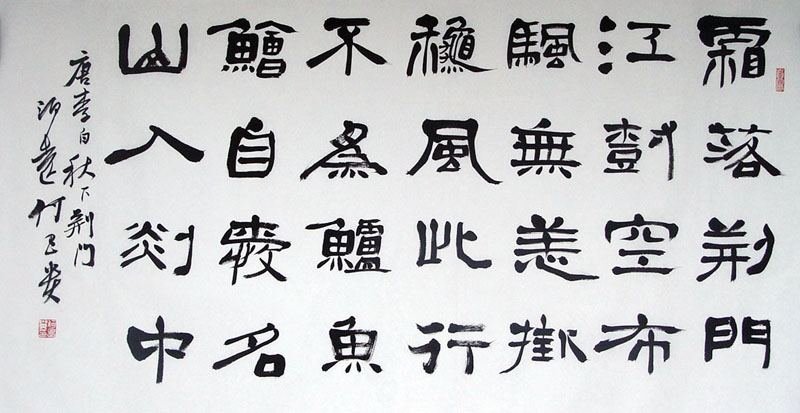 霜落荆門
江尌空布
颿無恙掛
龝風此行
不為鱸魚
鱠自愛名
山入剡中
唐李白秋下荆门